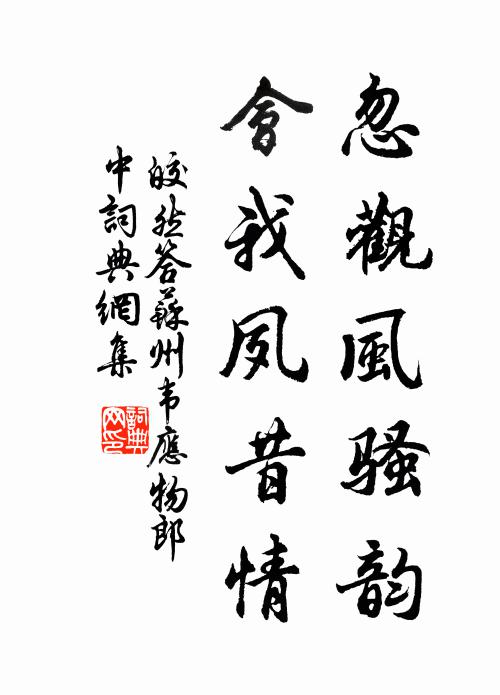 忽觀風騷韵
會我夙昔情
皎然答蘇州韦應物郎
中詞典網集
詞典网印